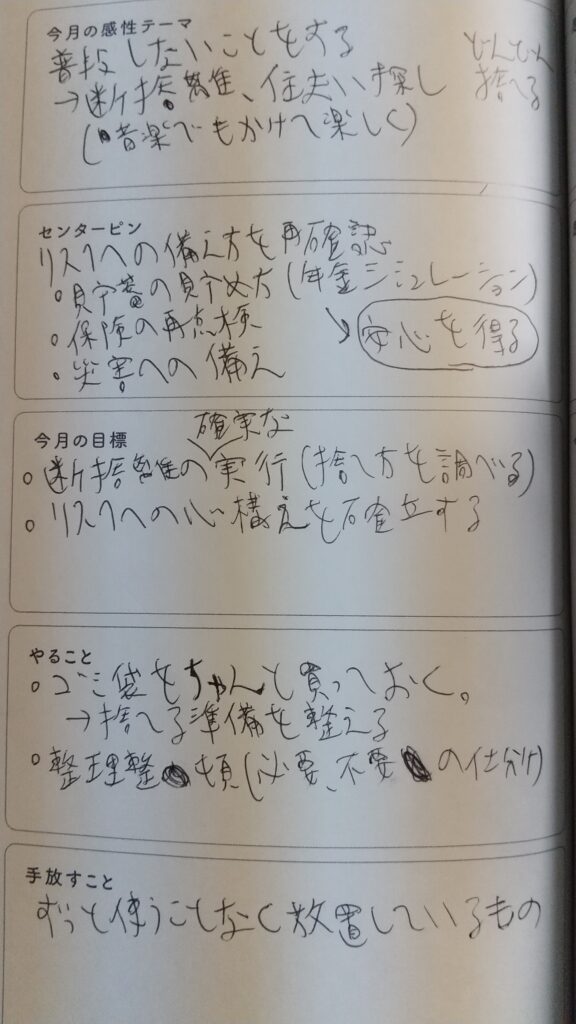 今月の感性テーマ
普段しないことをする
→断捨離、住まい探し
(音楽でもかけて楽しく)
どんどん
捨てる
センターピン
リスクへの備え方を再確認
○貯蓄の貯め方(年金シミュレーション)
○保険の再点検
○災害への備え
↘安心を得る
今月の目標
確実な
○断捨離の実行(捨て方を調べる)
○リスクへの心構えを確立する
やること
○ゴミ袋をちゃんと買っておく。
→捨てる準備を整える
○整理整頓(必要、不要の仕分け)
手放すこと
ずっと使うことなく放置しているもの